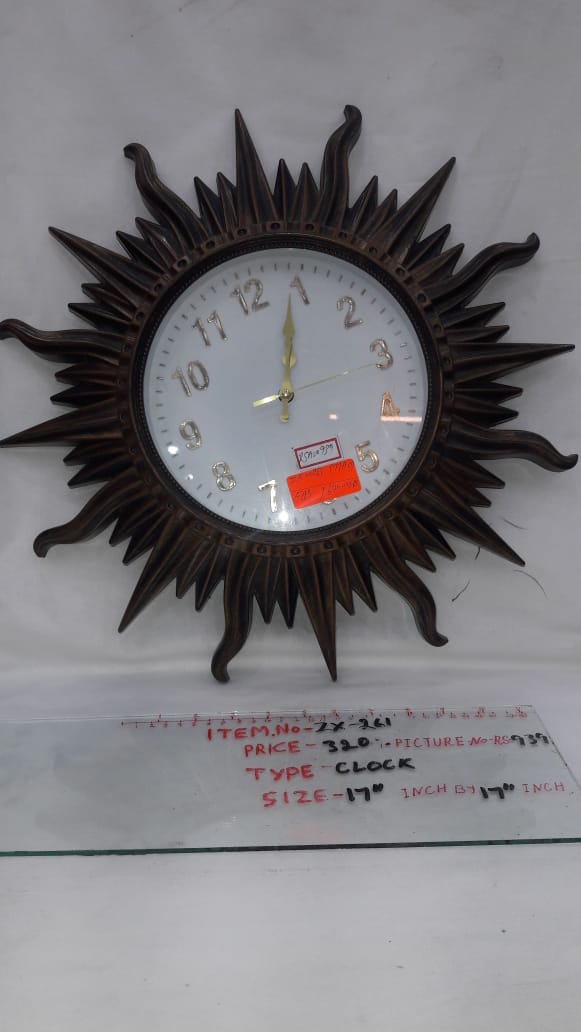 12
1
11
2
10
3
9
4
8
5
7
ITEM.No-ZX-261
PRICE-320/. PICTURE-No-RS939
TYPE-CLOCK
SIZE-17" INCH BY 17" INCH